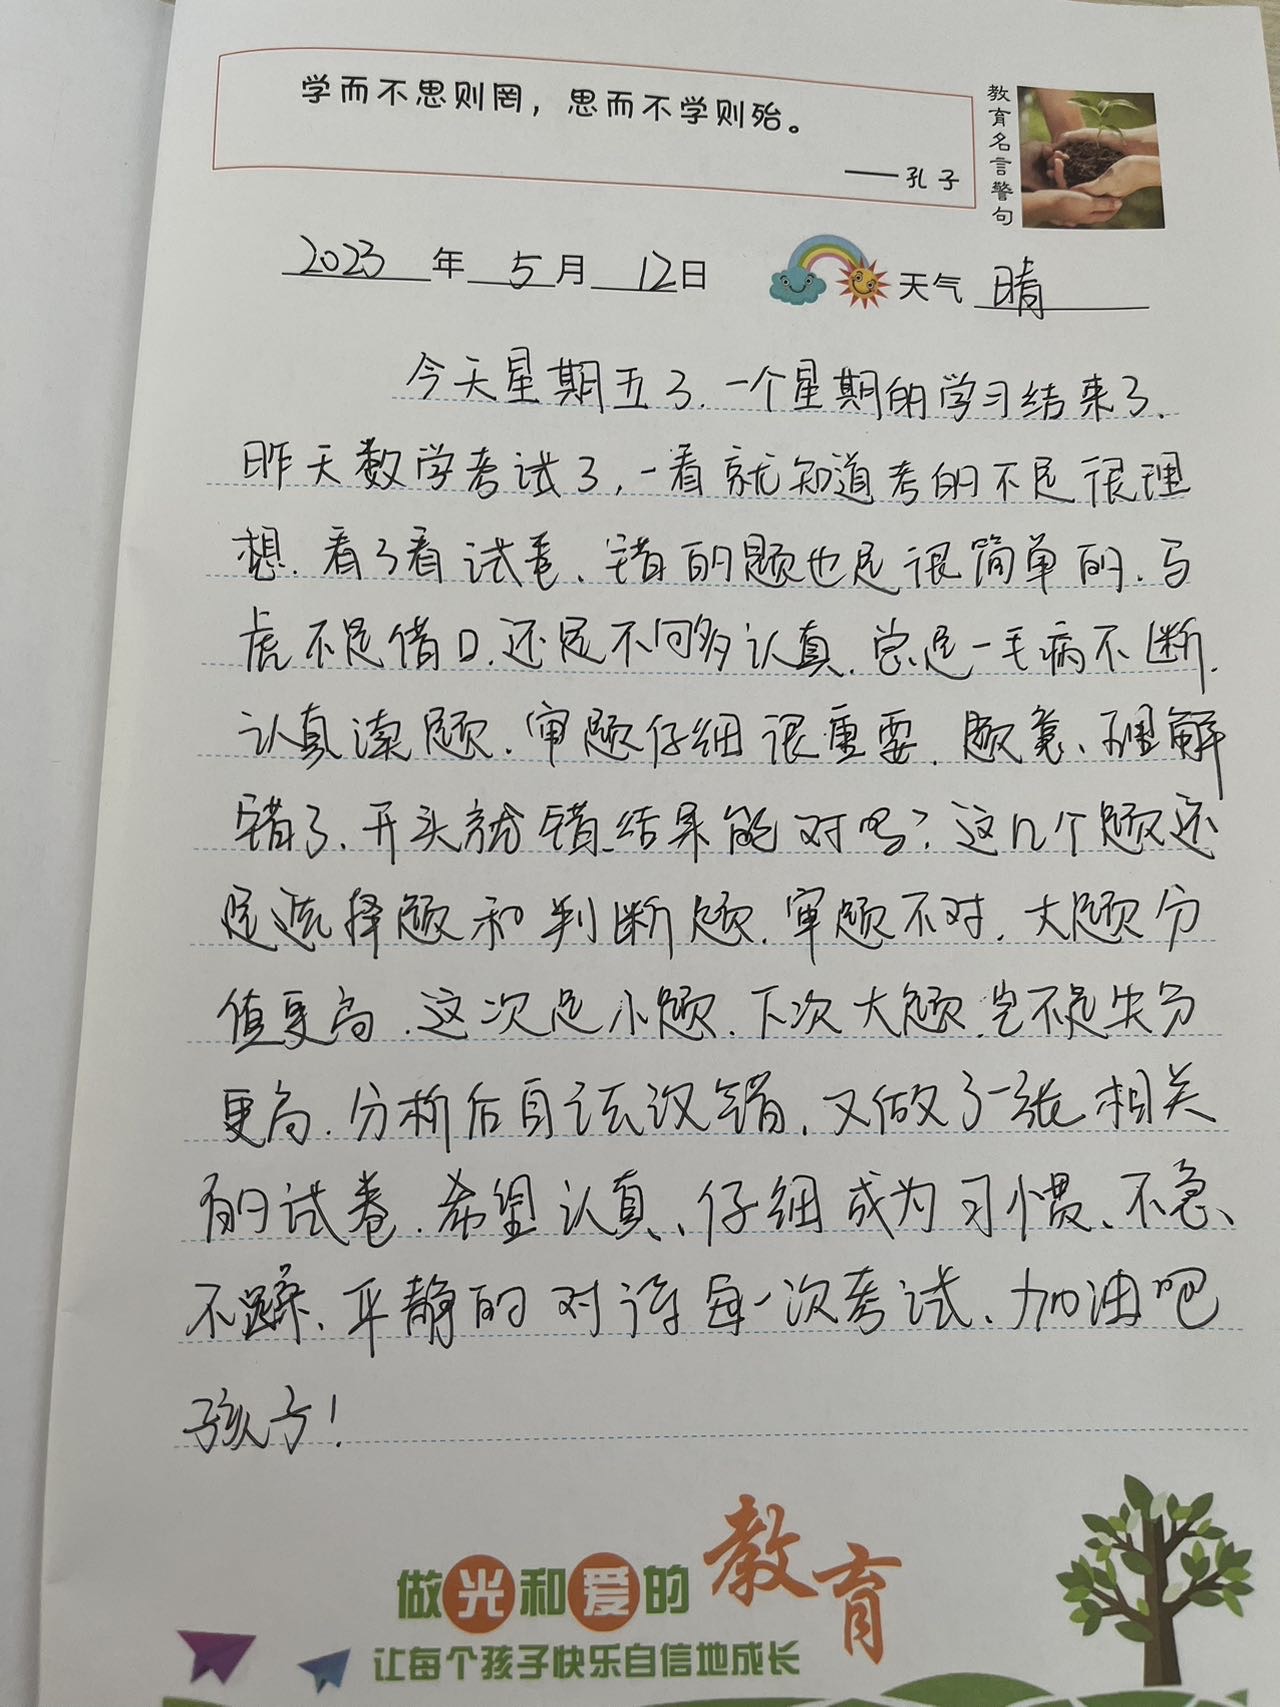 学而不思则罔，思而不学则殆。
——孔子
教育名言警句
2023年5月12日 天气 晴
今天星期五了.一个星期的学习结束了.
昨天数学考试了,一看就知道考的不是很理
想.看了看试卷、错的题也是很简单的.马
虎不是借口.还是不够认真.总是一毛病不断.
认真读题.审题仔细很重要.题意、理解
错了.开头就错.结果能对吗?这几个题还
是选择题和判断题.审题不对.大题分
值更高.这次是小题.下次大题.岂不是失分
更高.分析后自该没错.又做了一张相关
的试卷.希望认真、仔细成为习惯、不急、
不躁、平静的对待每一次考试、加油吧
孩子!
做光和爱的教育
让每个孩子快乐自信地成长